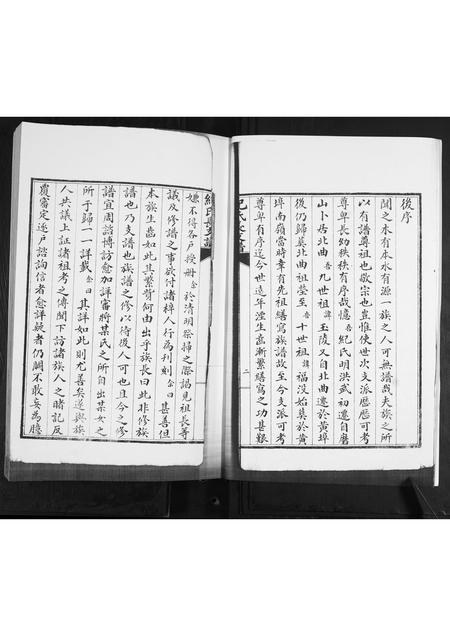 後序
聞之木有本水有源一族之人可無譜哉夫族之所
以有譜尊祖也敬宗也豈惟使世次支派歷歷可考
尊卑長幼秩秩有序哉憶吾紀氏明洪武初遷自磨
山卜居北曲吾九世祖諱玉陵又自北曲遷於黃埠
後仍歸莫北曲祖塋至吾十世祖諱福沒始莫於黃
埠南嶺當時幸有先祖繕寫族譜故至今支派可考
尊卑有序迄今世遠年湮生齒漸繁繕寫之功甚艱
二
紀氏支譜
嫌不得各戶授冊余於清明祭掃之際謁見祖長等
議及修譜之事欲付諸梓人行為刊刻余曰甚善但
本族生齒如此其繁胥何由出乎族長曰此非修族
譜也乃支譜也族譜之修以待後人可也且今之修
譜宜周諮博訪愈加詳審將某氏之所自出某女之
所于歸一一詳載余曰其詳如此則尤善矣遂與族
人共議上証諸祖考之傳聞下訪諸族人之睹記反
覆審定逐戶諮詢信者愈詳疑者仍闕不敢妄為臆